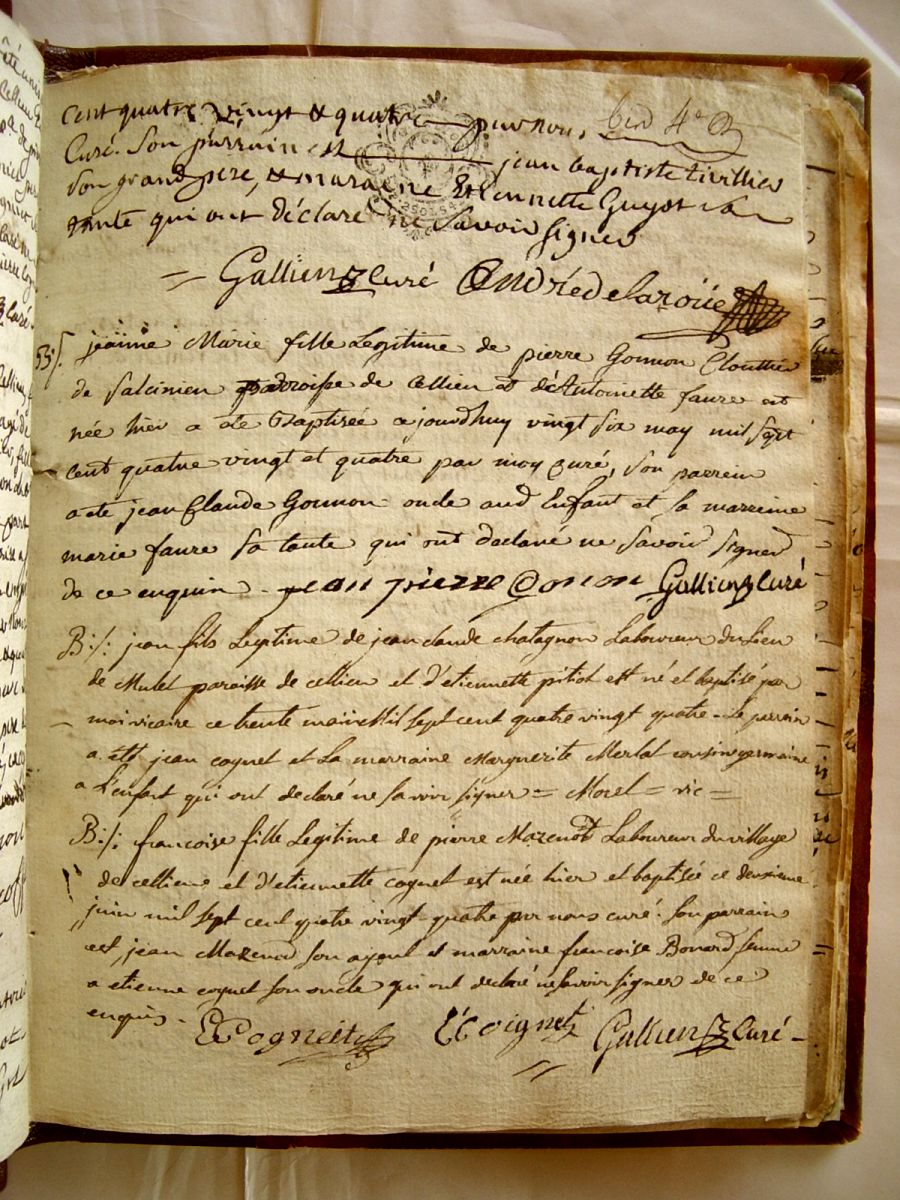 cent quatre vingt & quatre par nous
Curé. Son parrain est jean baptiste tivillier
son grand pere, & maraine Etiennette Guyot sa
tante qui ont déclaré ne savoir signer
= Gallien Curé Andrée delaroüe
B:/: jeanne Marie fille Legitime de pierre Gonnon Clouttier
de Salcinien parroisse de Cellieu et d'Antoinette faure est
née hier a ete Baptisée ajourdhuy vingt six may mil sept
cent quatre vingt et quatre par moy curé, son parrein
a eté jean Claude Gounon oncle aud Enfant et sa marreine
marie faure sa tante qui ont declaré ne savoir signer
de ce enquin - jean pierre Gonon Gallien Curé
B:/: jean fils Legitime de jean claude chatagnon Laboureur du Lieu
de Mulet paroisse de cellieu et d'etiennette pitiot est né et baptisé par
moi vicaire ce trente mai Mil sept cent quatre vingt quatre - Le parrain
a été jean coqnet et La marraine Marguerite Merlat cousin germaine
a L'enfant qui ont declaré ne savoir signer = Morel = vic =
B:/: francoise fille Legitime de pierre Mazenod Laboureur du village
de cellieu et d'etiennette coqnet est née hier et baptisée ce deuxieme
juin mil sept cent quatre vingt quatre par nous curé. Son parrain
est jean Mazenod son ayeul et marraine francoise Bonard femme
a etienne coqnet son oncle qui ont declaré ne savoir signer de ce
enquis -
E Cogneit E Coignet Gallien Curé -